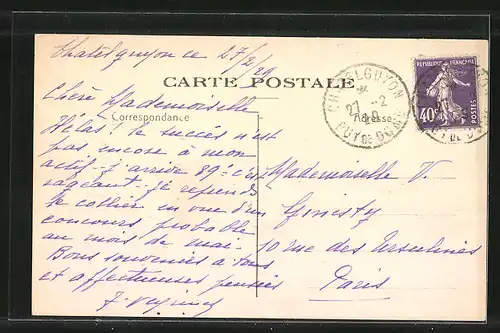 Chatelguyon ce 27/2/29
CARTE POSTALE
Correspondance
Adresse
Chère Mademoiselle
Hélas! le succès n'est
pas encore à mon
actif - j'arrive 89e c'est
rageant - Je reprends
le collier en vue d'un
concours probable
au mois de mai.
Bons souvenirs à tous
et affectueuses pensées
Mademoiselle V.
Ginesty
10 rue des Ursulines
Paris
CHATELGUYON
27 -2
29
PUY DE DOME
REPUBLIQUE FRANÇAISE
40c
POSTES